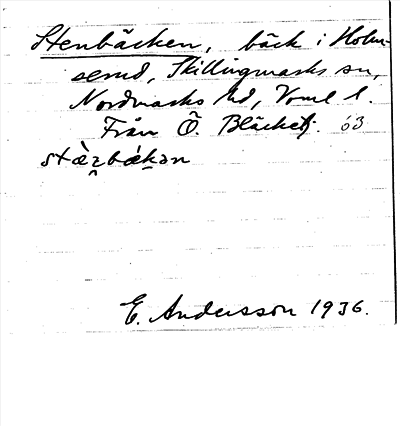 Stenbäcken, bäck i Holm-
serud, Skillingmarks sn,
Nordmarks hd, Vrml l.
Från Ö. Bläcketj. 63
stæ̀n̥bækən
E. Andersson 1936.